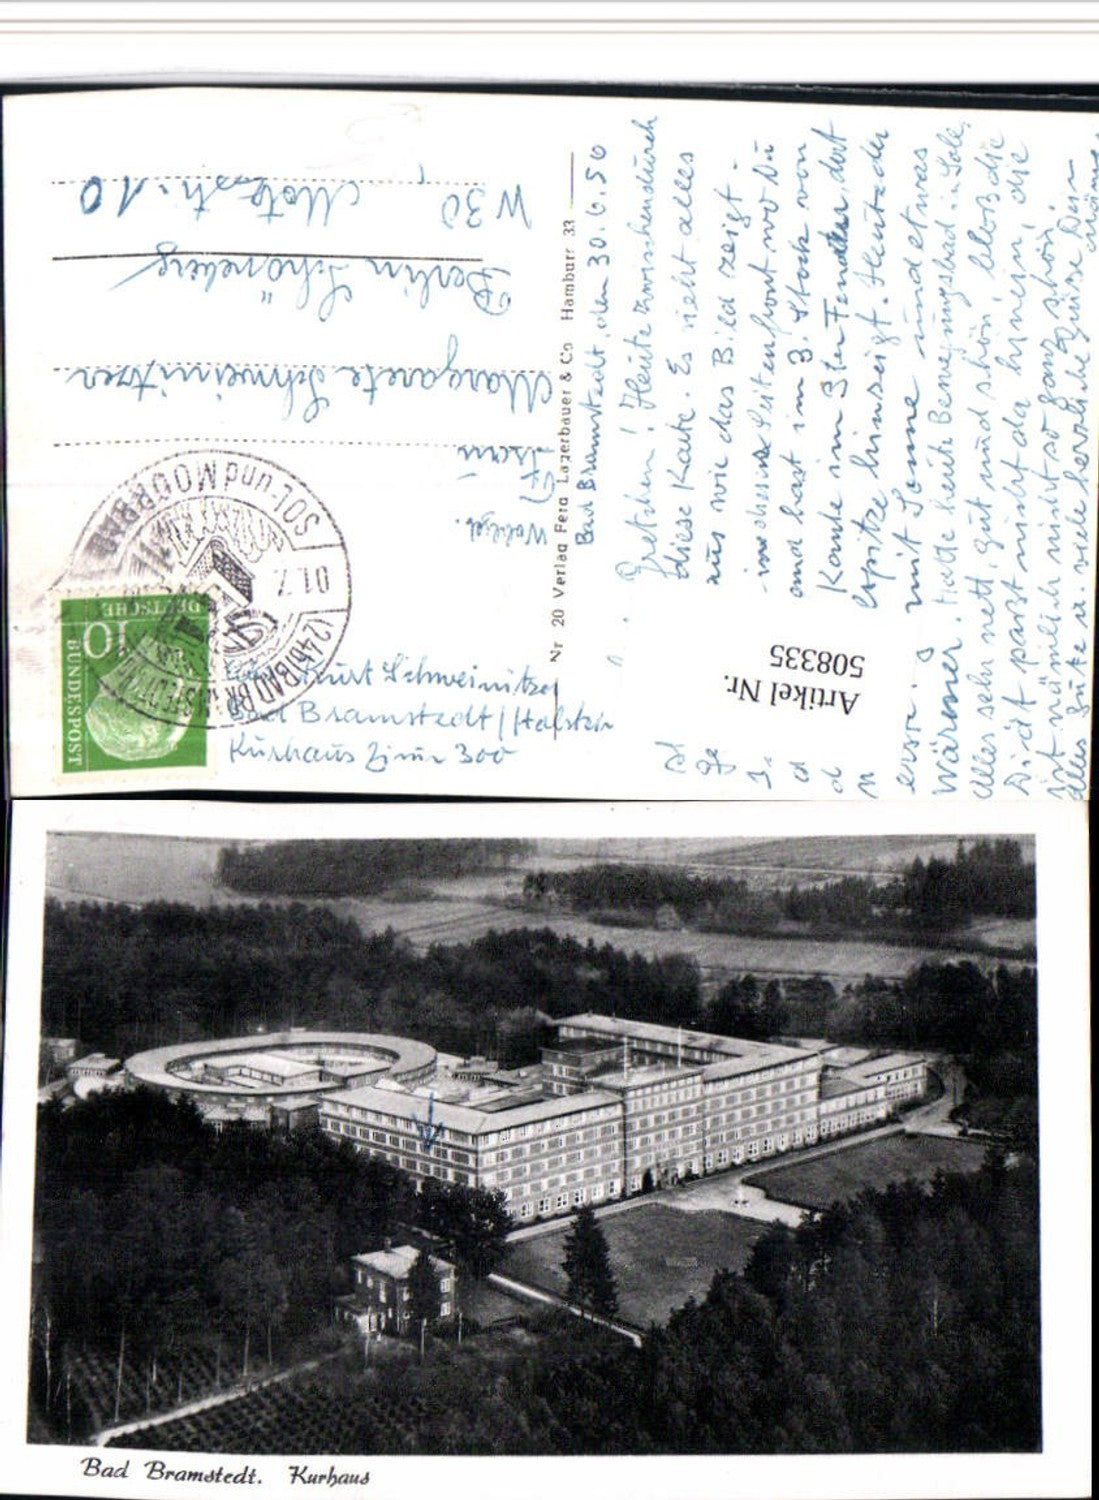 Bad Bramstedt, den 30.6.56
Gretchen! Heute zwischendurch
diese Karte. Es sieht alles
aus wie das Bild zeigt -
Seitenfront wo Du
und hast im 3. Stock von
Kante im 3ten Fenster, dort
spitze hinzeigt. Heute der
mit Sonne und etwas
wärmer. Hatte heute Bewegungsbad in Sole,
Alles sehr nett, gut und schön, bloß die
Diät passt nicht da hinein, die
ist nämlich nicht so ganz schön.
alles gute u. viele herzliche Grüsse Dein
Nr 20 Verlag Ferd Lagerbauer & Co Hamburg 33
Artikel Nr.
508335
Wohlgb.
Frau
Margarete Schweinitzer
Berlin Schöneberg
W 30 Motzstr. 10
DEUTSCHE
BUNDESPOST
10
SOL- und MOORBAD
(24b) BAD BRAMSTEDT
01.7.
Kurt Schweinitzer
Bad Bramstedt/Holstein
Kurhaus Zimm 300
Bad Bramstedt. Kurhaus